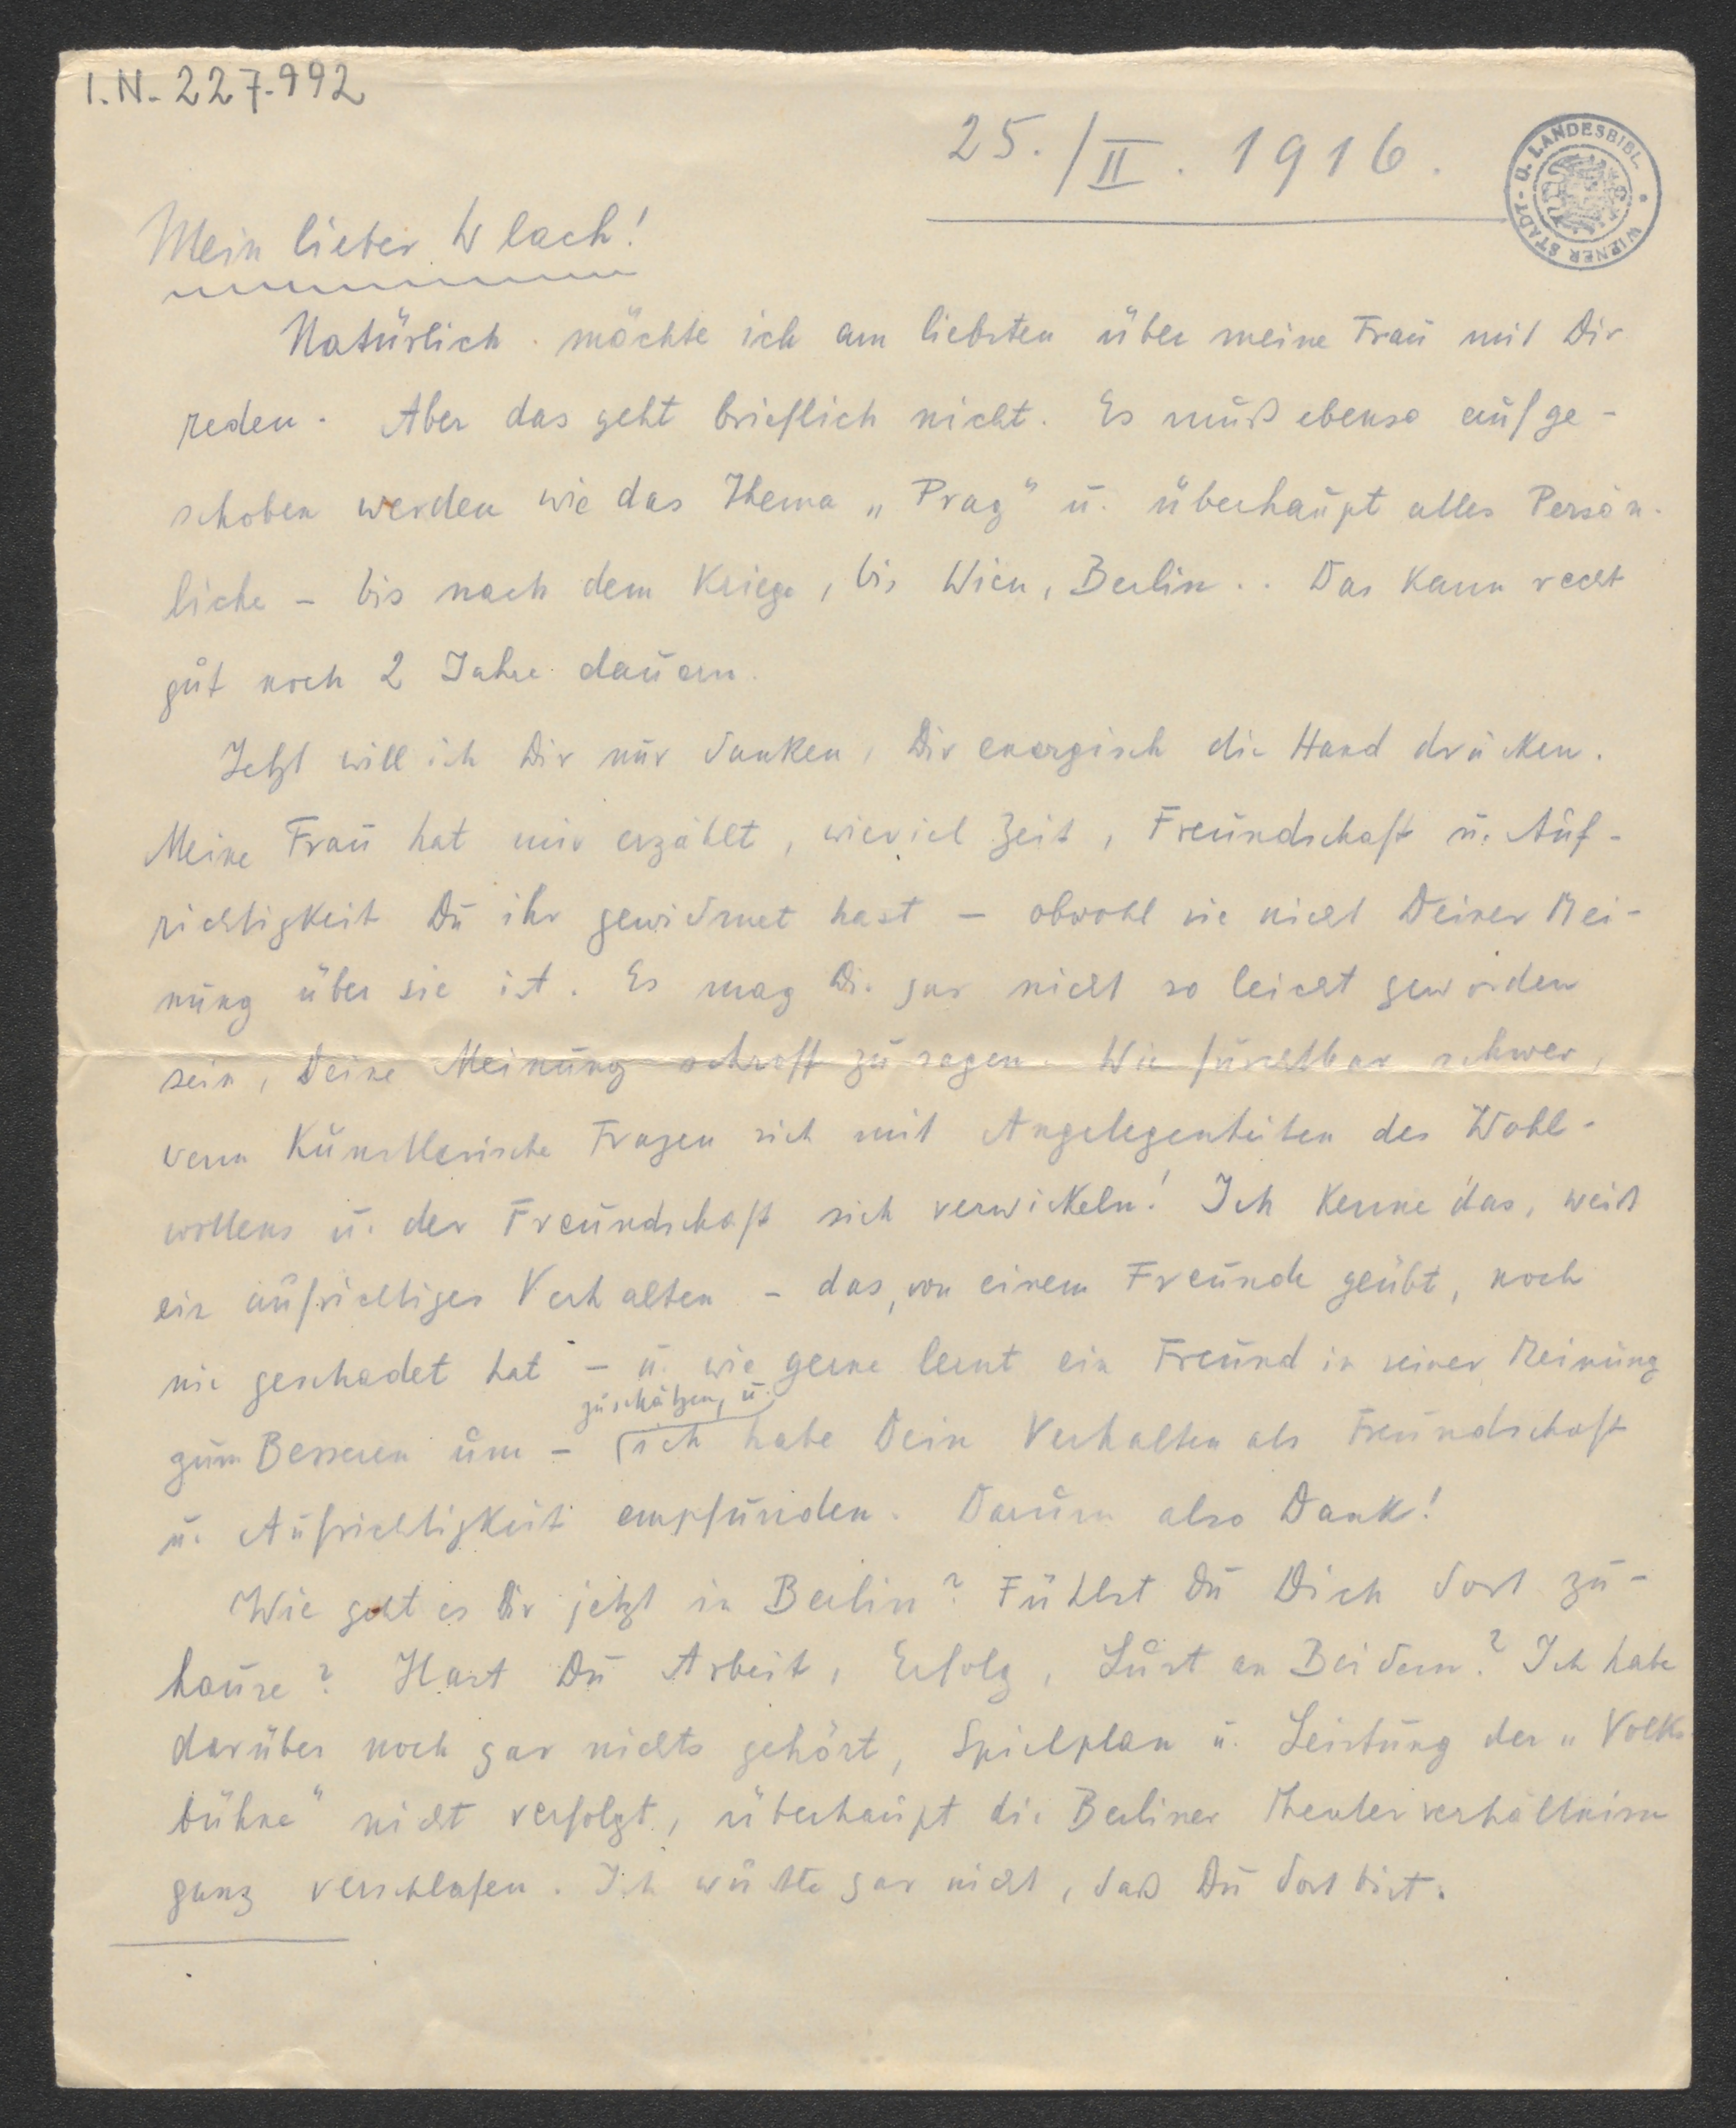 I.N. 227.992
25./II. 1916.
WIENER STADT- U. LANDESBIBL.
Mein lieber Wlach!
Natürlich möchte ich am liebsten über meine Frau mit Dir
reden. Aber das geht brieflich nicht. Es muß ebenso aufge-
schoben werden wie das Thema „Prag“ u. überhaupt alles Persön-
liche – bis nach dem Kriege, bis Wien, Berlin.. Das kann recht
gut noch 2 Jahre dauern.
Jetzt will ich Dir nur danken, Dir energisch die Hand drücken.
Meine Frau hat mir erzählt, wieviel Zeit, Freundschaft u. Auf-
richtigkeit Du ihr gewidmet hast – obwohl sie nicht Deiner Mei-
nung über sie ist. Es mag Dir gar nicht so leicht geworden
sein, Deine Meinung schroff zu sagen. Wie furchtbar schwer,
wenn künstlerische Fragen sich mit Angelegenheiten des Wohl-
wollens u. der Freundschaft sich verwickeln! Ich kenne das, weiß
ein aufrichtiges Verhalten – das, von einem Freunde geübt, noch
nie geschadet hat – u. wie gerne lernt ein Freund in seiner Meinung
zuschätzen, u.
zum Besseren um – ich habe Dein Verhalten als Freundschaft
u. Aufrichtigkeit empfunden. Darum also Dank!
Wie geht es Dir jetzt in Berlin? Fühlst Du Dich dort zu-
hause? Hast Du Arbeit, Erfolg, Lust an Beidem? Ich habe
darüber noch gar nichts gehört, Spielplan u. Leistung der „Volks
bühne“ nicht verfolgt, überhaupt die Berliner Theaterverhältnisse
ganz verschlafen. Ich wußte gar nicht, daß Du dort bist.